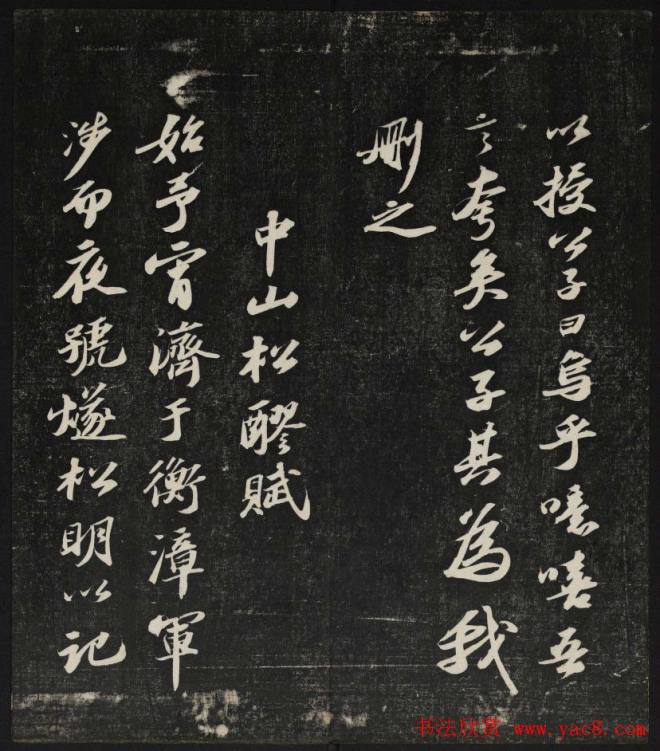 以授公子曰烏乎噫嘻吾
言夸矣公子其為我
刪之
中山松醪賦
始予宵濟于衡漳軍
涉而夜號燧松明以記
书法欣赏 www.yac8.com